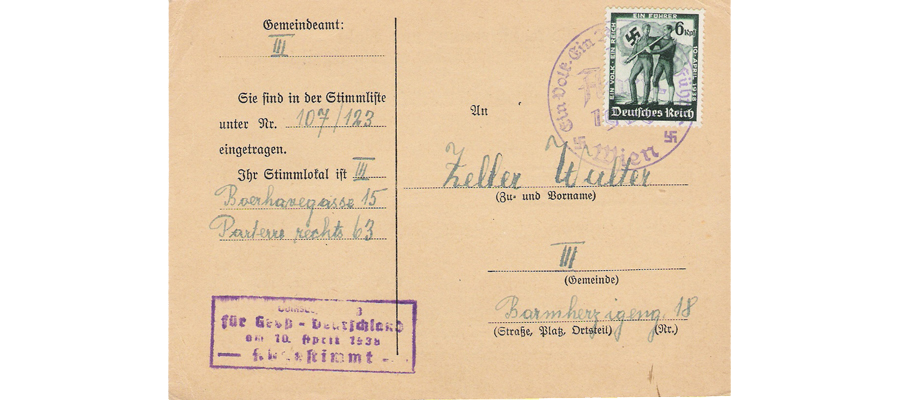 Gemeindeamt:
III
Sie sind in der Stimmliste
unter Nr. 107/123
eingetragen.
Ihr Stimmlokal ist III
Boerhavegasse 15
Parterre rechts 63
für Groß-Deutschland
am 10. April 1938
An
Zelter Walter
(Zu- und Vorname)
III
(Gemeinde)
Barmherzigeng 18
(Straße, Platz, Ortsteil) (Nr.)
Ein Volk. Ein
Wien
EIN VOLK EIN REICH
EIN FÜHRER
10. APRIL 1938
6 Rpf
Deutsches Reich